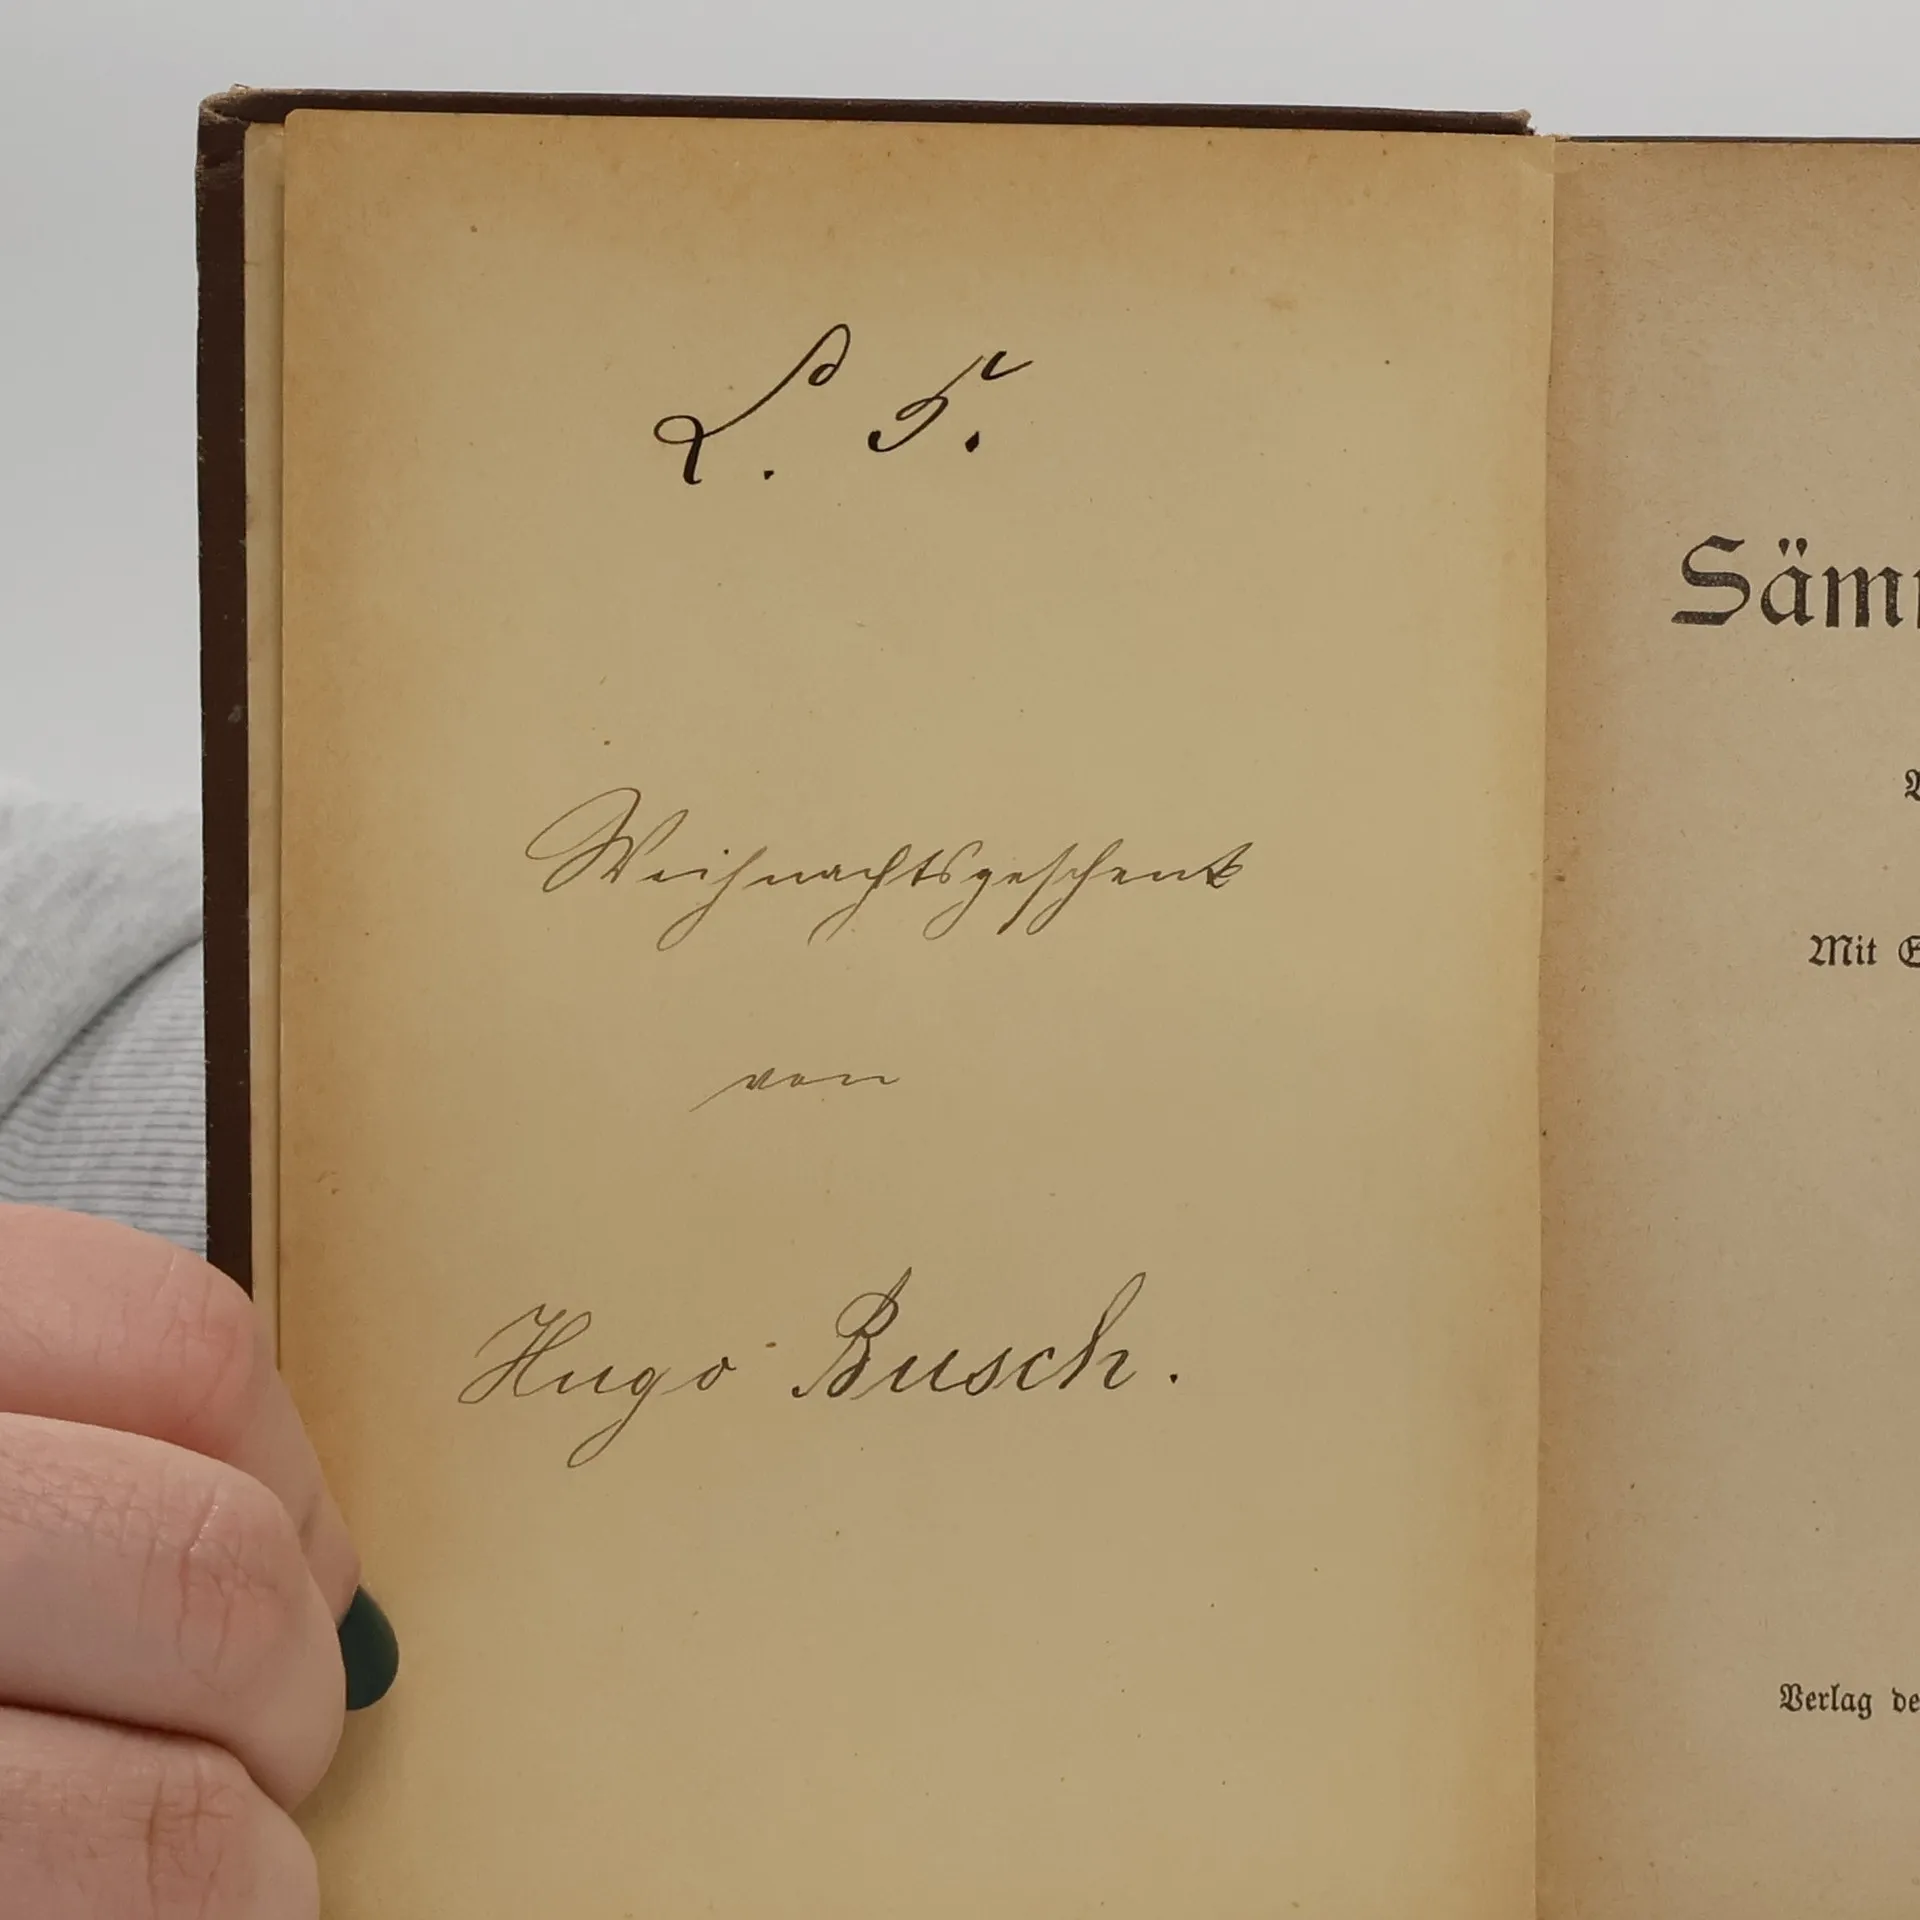 L. F.
Weihnachtsgeschenk
von
Hugo Busch.
Säm
Mit
Verlag de